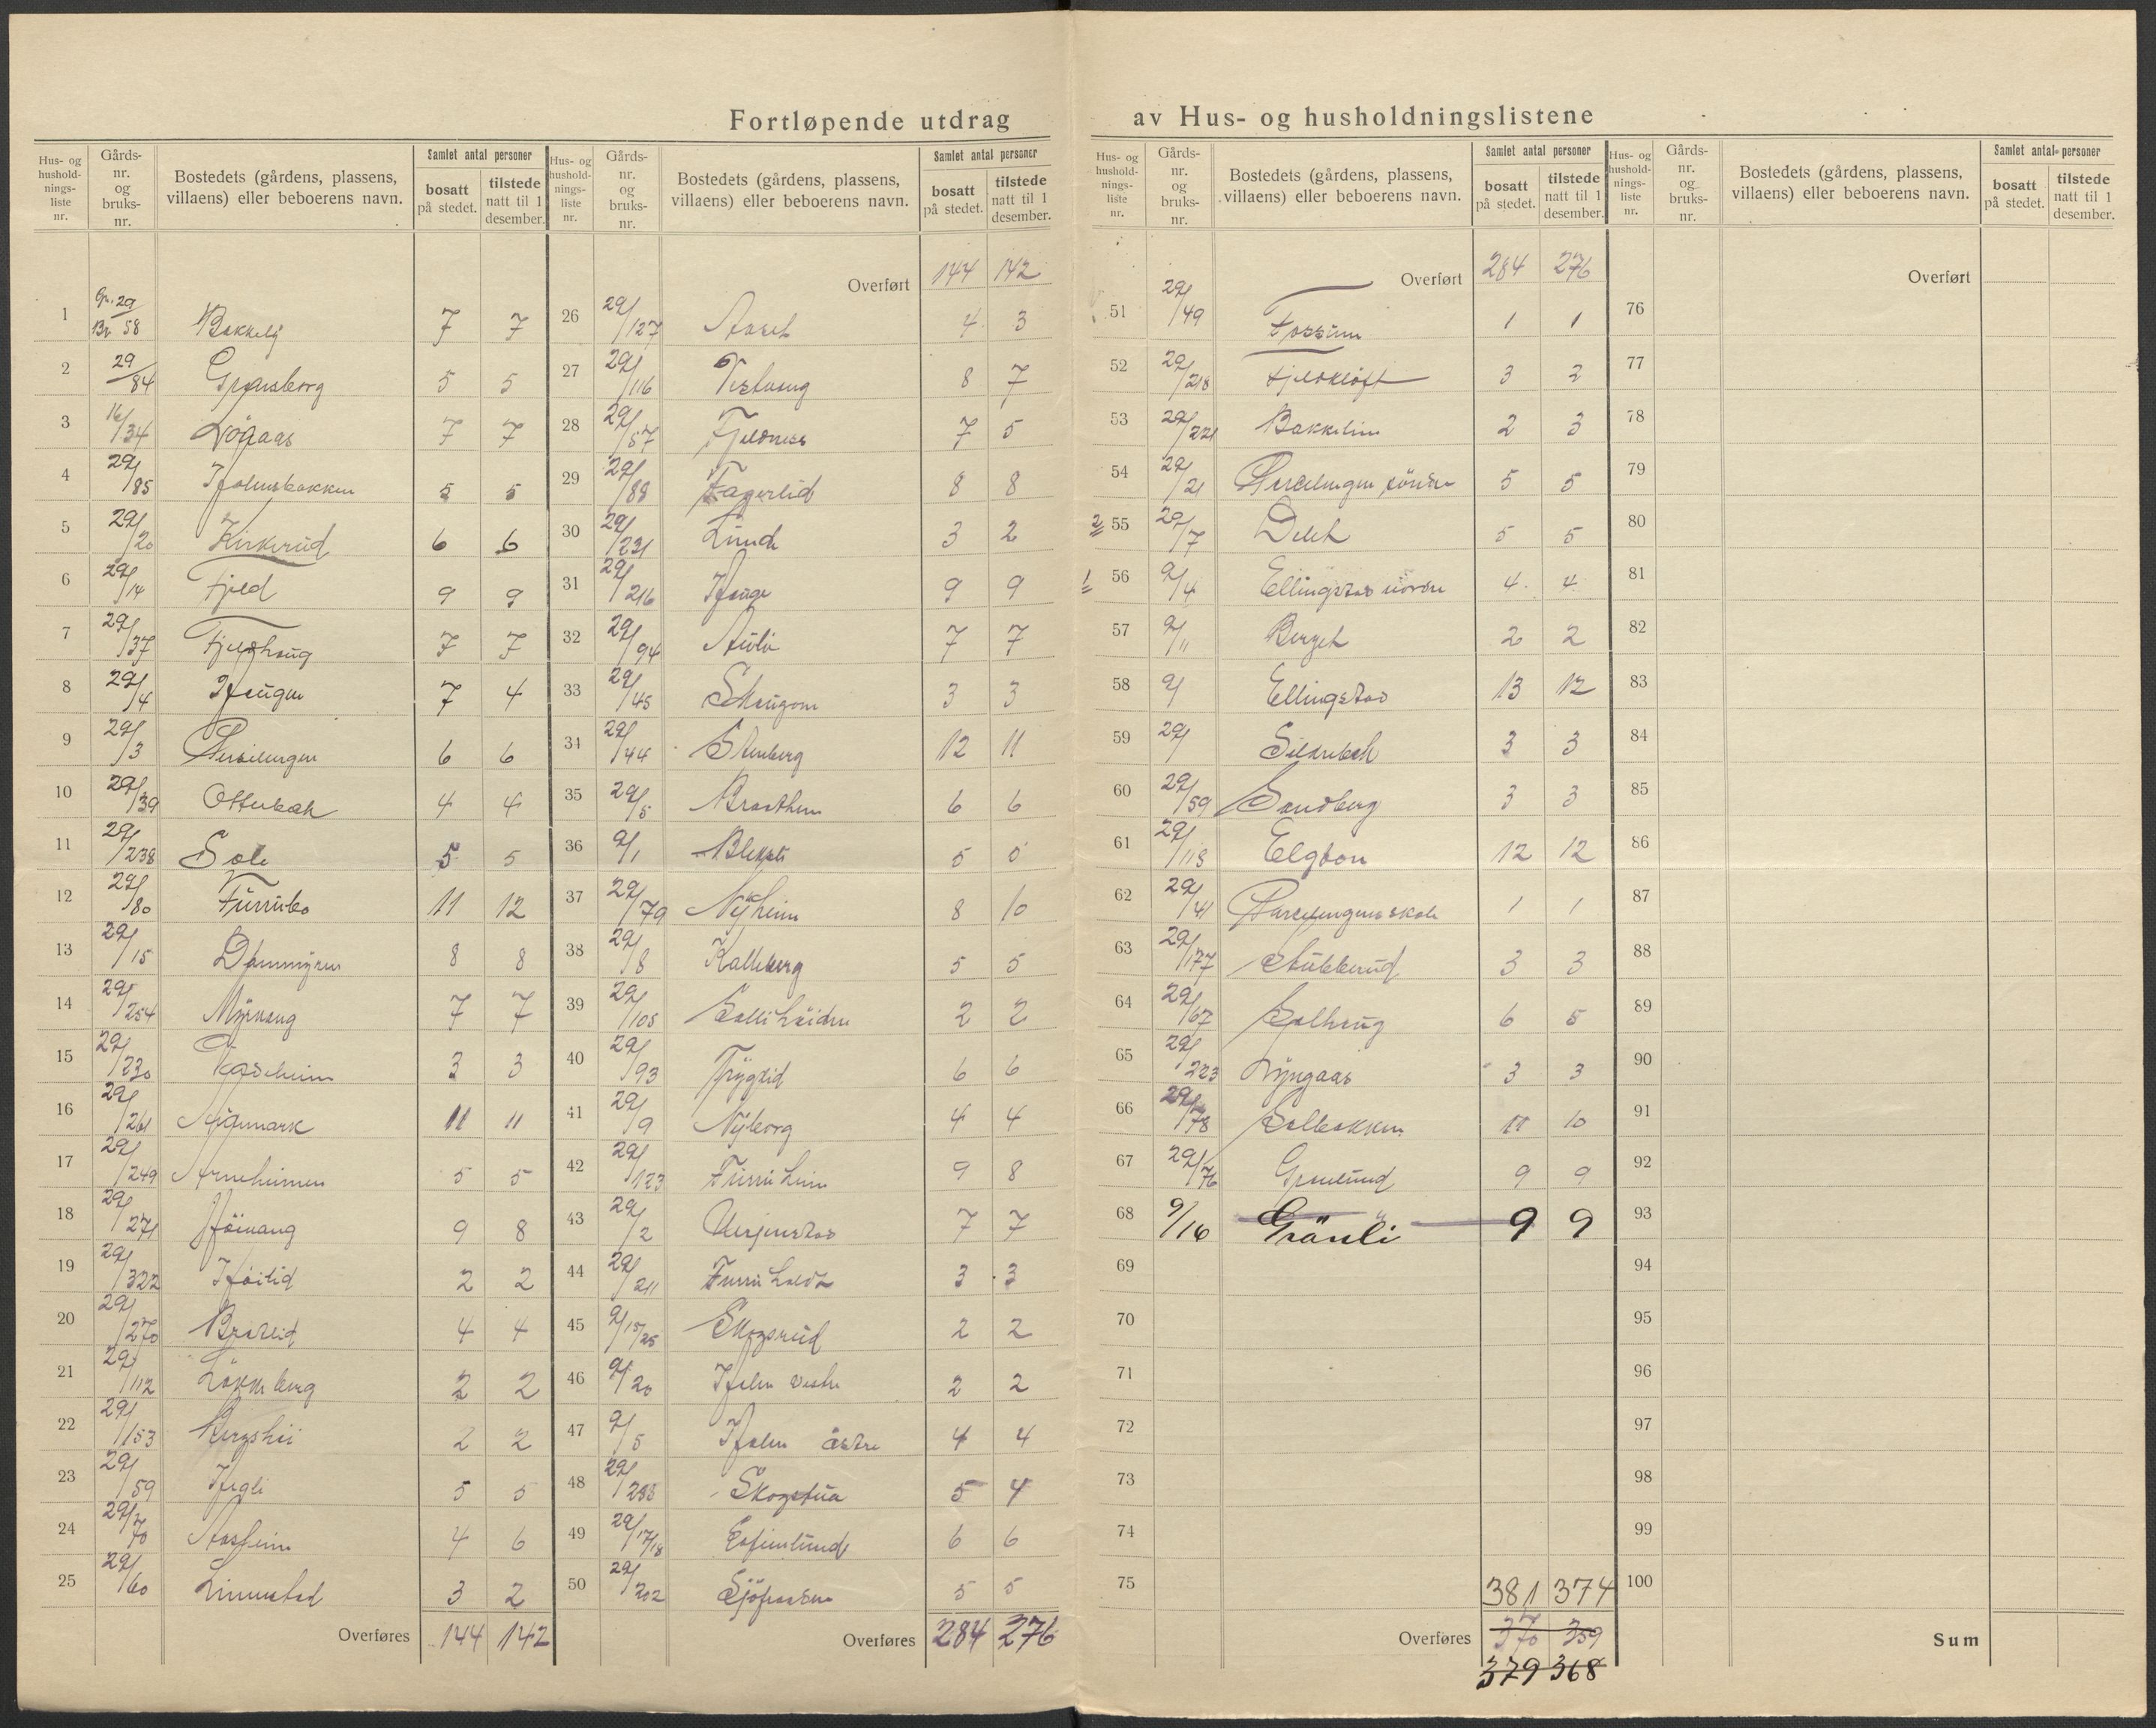 Fortløpende utdrag av Hus- og husholdningslistene
Hus- og husholdningsliste nr. | Gårds-nr. og bruks-nr. | Bostedets (gårdens, plassens, villaens) eller beboerens navn. | Samlet antal personer | bosatt på stedet. | tilstede natt til 1 desember.
1 Gnr. 29 Br 58 Bakkely 7 7
2 29/84 5 5
3 16/34 Lögaas 7 7
4 29/85 Holmsbakken 5 5
5 29/20 Kirkerud 6 6
6 29/14 Fjeld 9 9
7 29/37 Fjeldhaug 7 7
8 29/4 Haugen 7 4
9 29/3 6 6
10 29/39 Otterbek 4 4
11 29/238 Sole 5 5
12 29/80 Furrubo 11 12
13 29/15 Dammyren 8 8
14 29/254 Myrvang 7 7
15 29/230 3 3
16 29/261 Nymark 11 11
17 29/249 Arneheimen 5 5
18 29/271 9 8
19 29/322 Höilid 2 2
20 29/270 Bratlid 4 4
21 29/112 2 2
22 29/153 2 2
23 29/59 Hegli 5 5
24 29/70 Aasheim 4 6
25 29/60 3 2
Overføres 144 142
Hus- og husholdningsliste nr. | Gårds-nr. og bruks-nr. | Bostedets (gårdens, plassens, villaens) eller beboerens navn. | Samlet antal personer | bosatt på stedet. | tilstede natt til 1 desember.
Overført 144 142
26 29/127 Aaset 4 3
27 29/116 Vestvang 8 7
28 29/57 Fjeldness 7 5
29 29/88 Fagerlid 8 8
30 29/231 Lunde 3 2
31 29/216 Hauge 9 9
32 29/94 7 7
33 29/45 Skaugom 3 3
34 29/44 Stenberg 12 11
35 29/5 Braathen 6 6
36 9/1 5 5
37 29/79 Nyheim 8 10
38 29/8 Kalleberg 5 5
39 29/105 2 2
40 29/93 Tryglid 6 6
41 29/9 Nyborg 4 4
42 29/123 Furruheim 9 8
43 29/2 7 7
44 29/211 3 3
45 9/15/25 Skogsrud 2 2
46 9/20 Holm vestre 2 2
47 9/5 Holm östre 4 4
48 29/258 Skogstua 5 4
49 29/17/18 6 6
50 29/202 5 5
Overføres 284 276
Hus- og husholdningsliste nr. | Gårds-nr. og bruks-nr. | Bostedets (gårdens, plassens, villaens) eller beboerens navn. | Samlet antal personer | bosatt på stedet. | tilstede natt til 1 desember.
Overført 284 276
51 29/49 Fossum 1 1
52 29/218 Fjeldkløft 3 2
53 29/221 2 3
54 29/21 söndre 5 5
2 55 29/7 Delet 5 5
1 56 9/4 Ellingstad nordre 4 4
57 9/11 Berget 2 2
58 9/ Ellingstad 13 12
59 29/ 3 3
60 29/59 Sandberg 3 3
61 29/118 Elgton 12 12
62 29/41 skole 1 1
63 29/177 Stubberud 3 3
64 29/67 Solhaug 6 5
65 29/223 Lyngaas 3 3
66 29/78 Solbakken 11 10
67 29/76 Granlund 9 9
68 9/16 Grönli 9 9
69
70
71
72
73
74
75 381 374
Overføres 370 359
379 368
Hus- og husholdningsliste nr. | Gårds-nr. og bruks-nr. | Bostedets (gårdens, plassens, villaens) eller beboerens navn. | Samlet antal personer | bosatt på stedet. | tilstede natt til 1 desember.
Overført
76
77
78
79
80
81
82
83
84
85
86
87
88
89
90
91
92
93
94
95
96
97
98
99
100
Sum